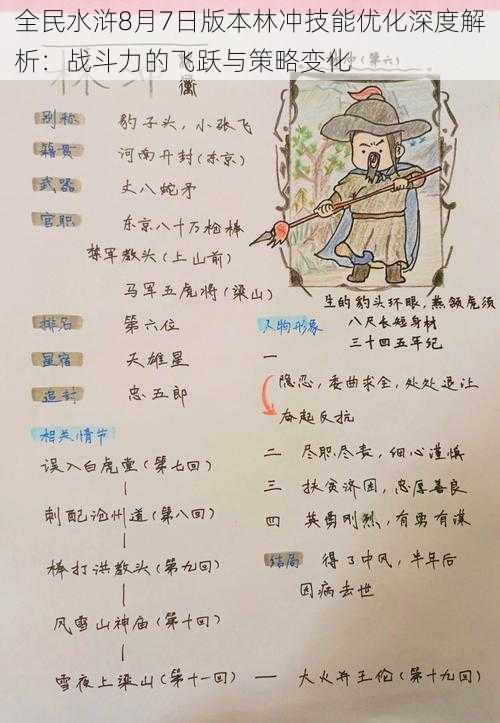 全民水浒8月7日版本林冲技能优化深度解
析：战斗力的飞跃与策略变化
(第六)
别称 豹子头，小张飞
籍贯 河南开封(东京)
武器 丈八蛇矛
官职 东京八十万枪棒
禁军教头(上山前)
马军五虎将(梁山)
排名 第六位
星宿 天雄星
追封 忠五郎
相关情节
误入白虎堂(第七回)
刺配沧州道(第八回)
棒打洪教头(第九回)
风雪山神庙(第十回)
雪夜上梁山(第十一回) — 大火并王伦(第十九回)
生的豹头环眼，燕颔虎须
八尺长短身材
三十四五年纪
人物形象
一
隐忍，委曲求全，处处退让
奋起反抗
二 尽职尽责，细心谨慎
三 扶贫济困，忠厚善良
四 英勇刚烈，有勇有谋
结局 得了中风，半年后
因病去世